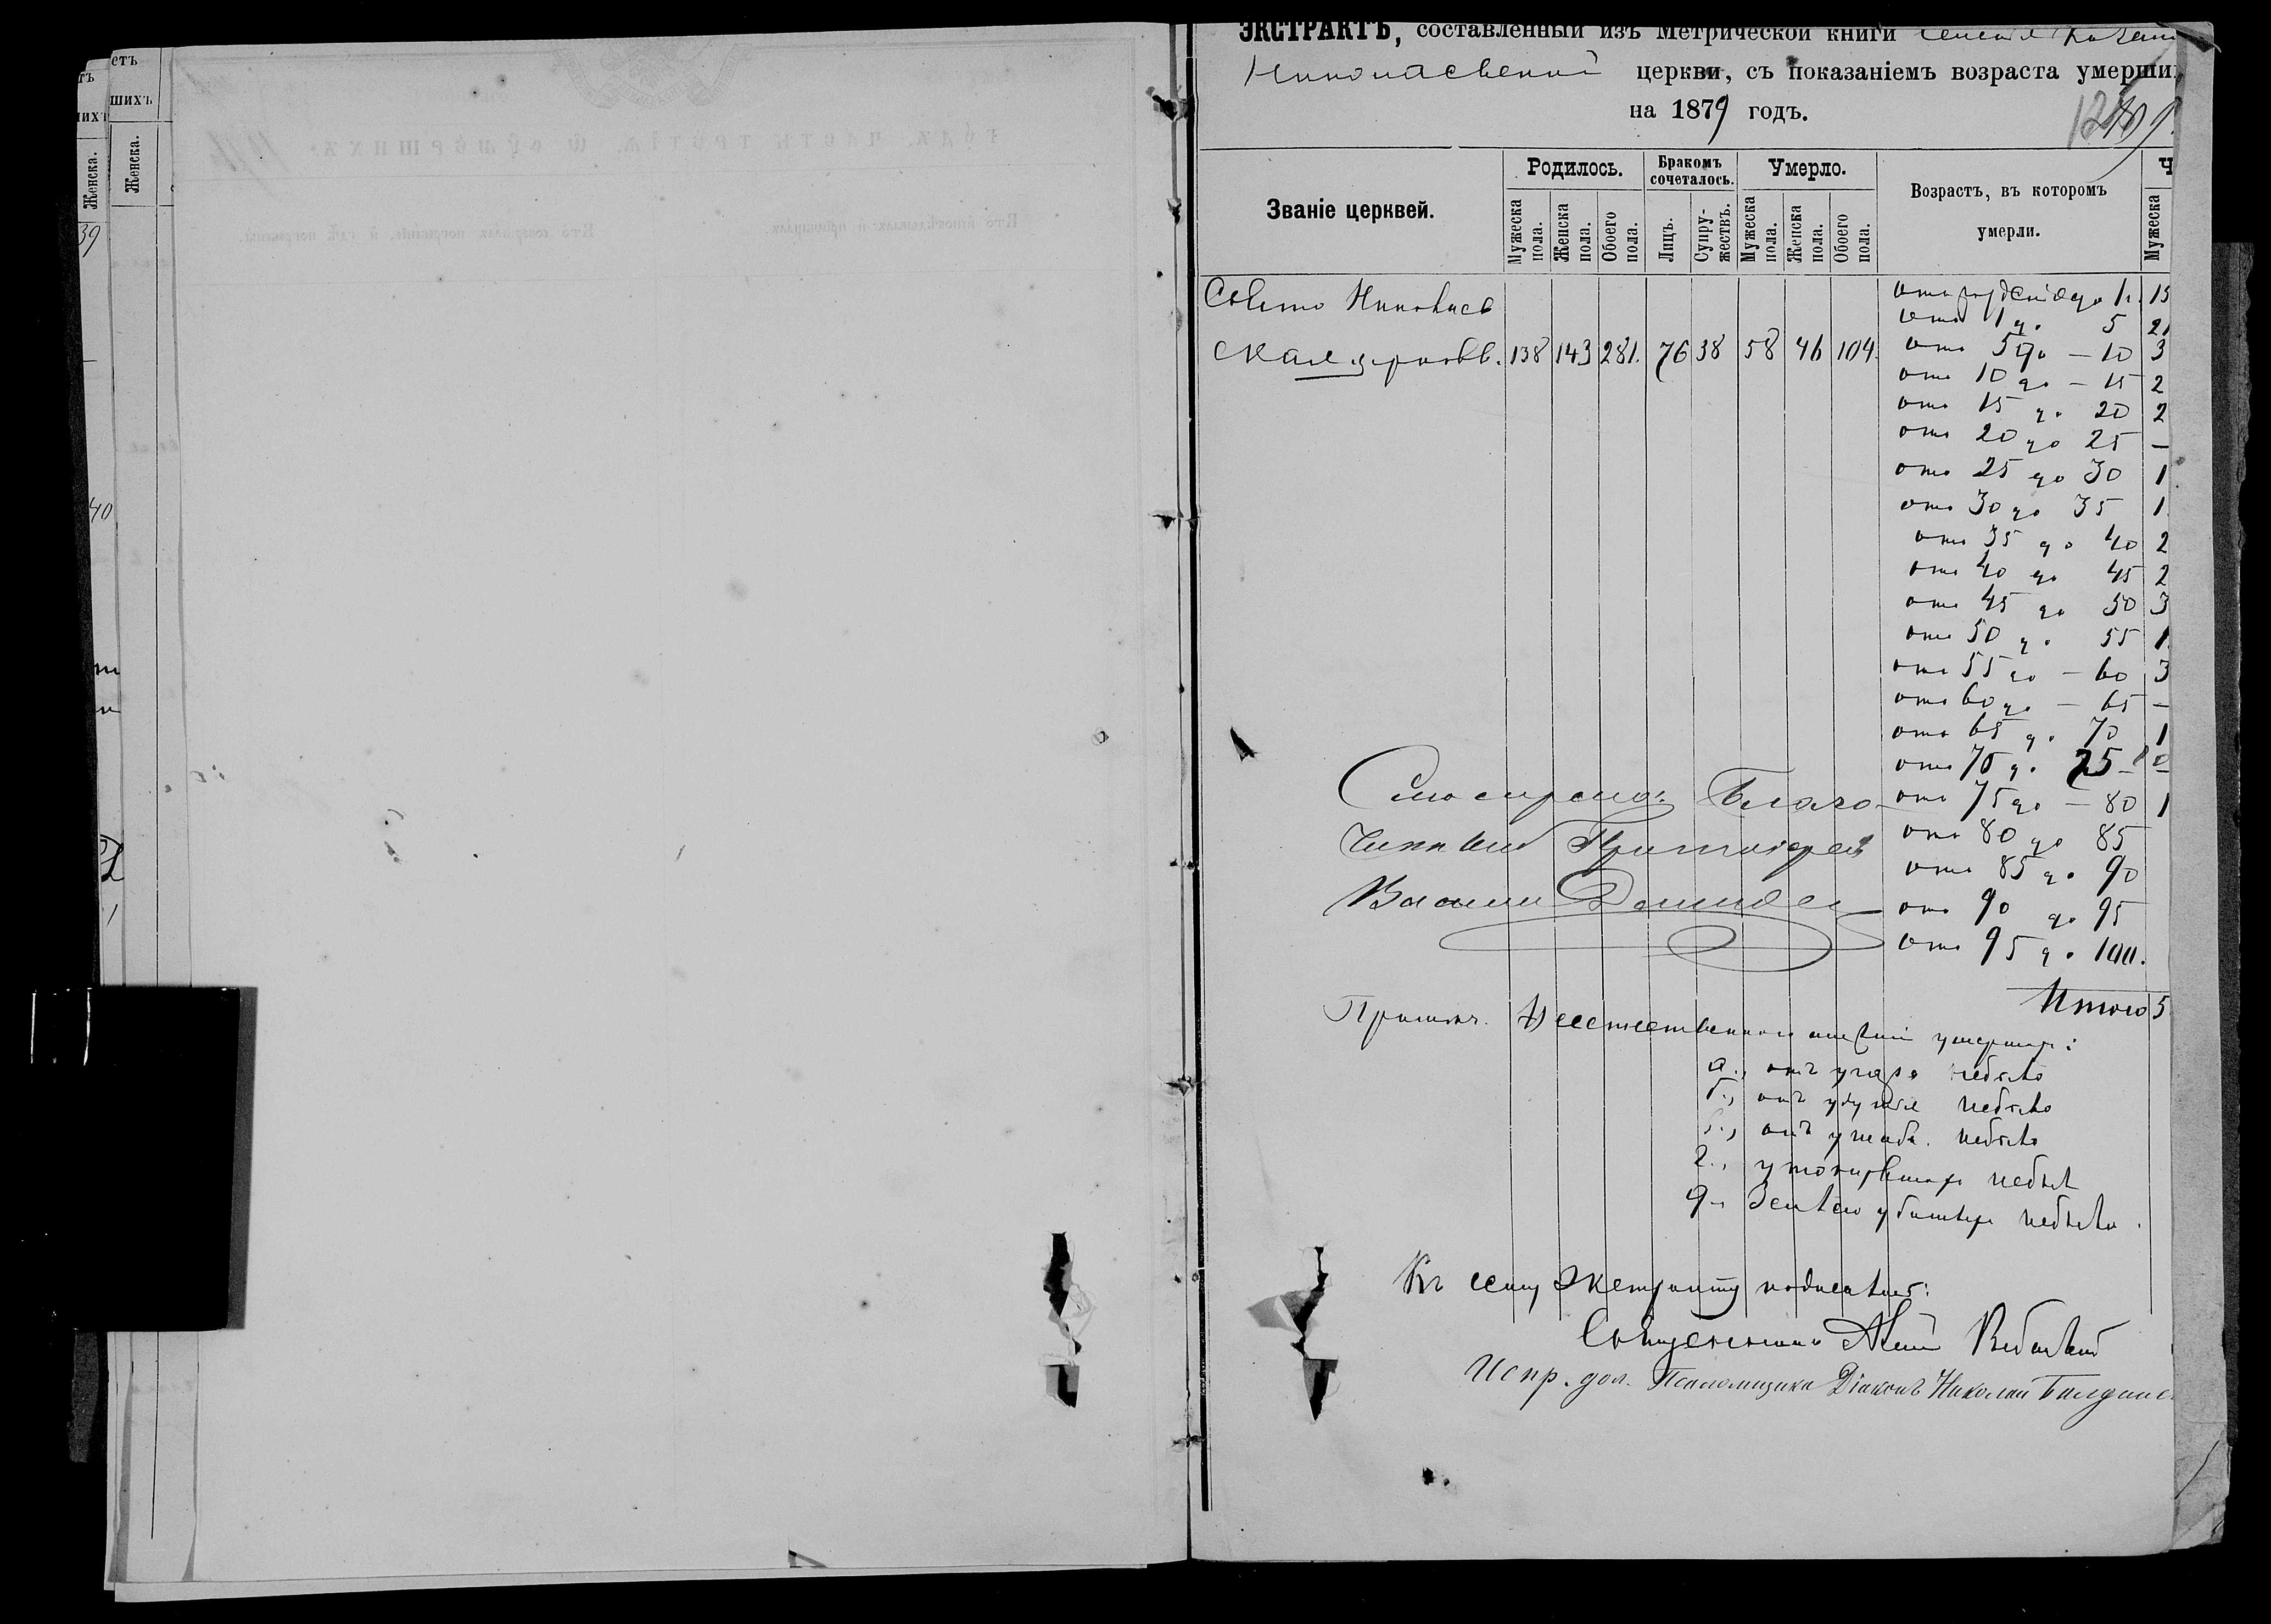 етъ
шихъ
Женска.
Женска.
39
40
ЭКСТРАКТЪ, составленный изъ Метрической книги
Николаевской церкви, съ показаніемъ возраста умерши
на 1879 годъ.
Званіе церквей.
Родилось.
Бракомъ сочеталось.
Умерло.
Возрастъ, въ которомъ
умерли.
Ч
Мужеска пола.
Женска пола.
Обоего пола.
Лицъ.
Супружествъ.
Мужеска пола.
Женска пола.
Обоего пола.
Мужеска
Свято Николаев
ская церковь. 138 143 281. 76 38 58 46 104.
отъ рожденія до 1 г. 15
отъ 1 до 5 21
отъ 5 до — 10 3
отъ 10 до — 15 2
отъ 15 до 20 2
отъ 20 до 25 —
отъ 25 до 30 1
отъ 30 до 35 1
отъ 35 до 40 2
отъ 40 до 45 2
отъ 45 до 50 3
отъ 50 до 55 1
отъ 55 до — 60 3
отъ 60 до — 65 —
отъ 65 до 70 1
отъ 70 до 75 —
отъ 75 до — 80 1
отъ 80 до 85
отъ 85 до 90
отъ 90 до 95
отъ 95 до 100.
Итого 5
Смотрелъ: Благо-
чинный Протоіерей
Василій
Примѣч. Неестественною смертію умершихъ:
а., отъ угара небыло
отъ небыло
отъ небыло
г., утонувшихъ небыло
д., Землею убитыхъ небыло.
Къ сему Экстракту подписались:
Священникъ
Испр. дол. Псаломщика Діаконъ Николай